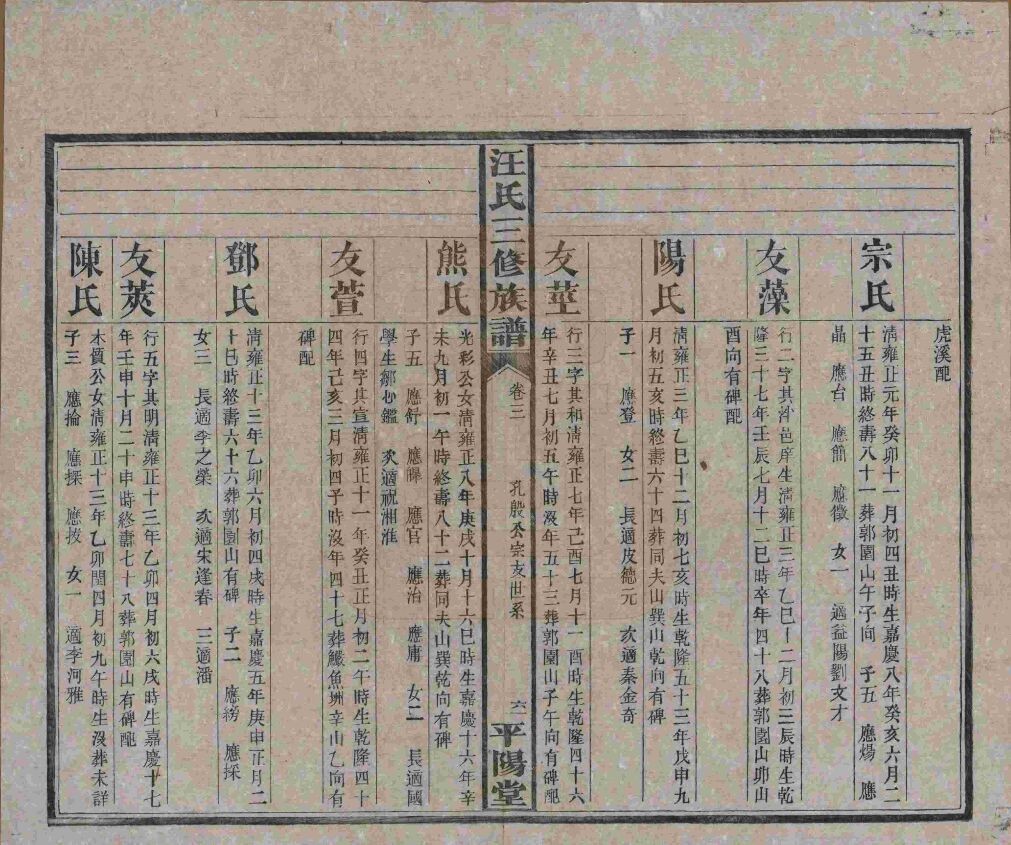 虎溪配
宗氏
清雍正元年癸卯十一月初四丑時生嘉慶八年癸亥六月二
十五丑時終壽八十一葬郭園山午子向 子五 應煬 應
晶 應台 應簡 應徵 女一 適益陽劉文才
友藻
行二字其沙邑庠生清雍正三年乙巳十二月初三辰時生乾
隆三十七年壬辰七月十二巳時卒年四十八葬郭園山卯山
酉向有碑配
陽氏
清雍正三年乙巳十二月初七亥時生乾隆五十三年戊申九
月初五亥時終壽六十四葬同夫山巽山乾向有碑
子一 應登 女二 長適皮德元 次適秦金奇
友莖
行三字其和清雍正七年己酉七月十一酉時生乾隆四十六
年辛丑七月初五午時沒年五十三葬郭園山子午向有碑配
汪氏三修族譜
卷三
孔殷公宗支世系
六一
平陽堂
熊氏
光彩公女清雍正八年庚戌十月十六巳時生嘉慶十六年辛
未九月初一午時終壽八十二葬同夫山巽乾向有碑
子五 應舒 應皥 應官 應治 應庸 女二 長適國
學生鄒心鑑 次適祝湘淮
友萱
行四字其宣清雍正十一年癸丑正月初二午時生乾隆四十
四年己亥三月初四子時沒年四十七葬鱖魚洲辛山乙向有
碑配
鄧氏
清雍正十三年乙卯六月初四戌時生嘉慶五年庚申正月二
十巳時終壽六十六葬郭園山有碑 子二 應紡 應採
女三 長適李之榮 次適宋逢春 三適潘
友莢
行五字其明清雍正十三年乙卯四月初六戌時生嘉慶十七
年壬申十月二十申時終壽七十八葬郭園山有碑配
陳氏
木質公女清雍正十三年乙卯閏四月初九午時生沒葬未詳
子三 應掄 應採 應按 女一 適李河雅